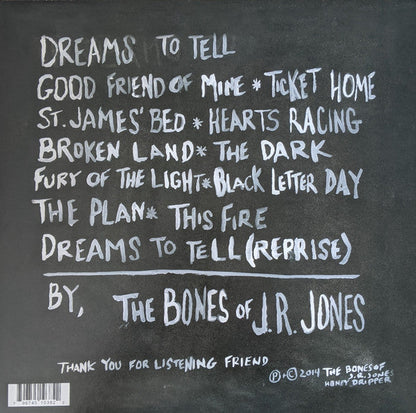 DREAMS TO TELL
GOOD FRIEND OF MINE * TICKET HOME
ST. JAMES' BED * HEARTS RACING
BROKEN LAND * THE DARK
FURY OF THE LIGHT * BLACK LETTER DAY
THE PLAN * THIS FIRE
DREAMS TO TELL (REPRISE)
BY, THE BONES OF J.R. JONES
THANK YOU FOR LISTENING FRIEND
Ⓟ+© 2014 THE BONES OF
J.R. JONES
HONEY DRIPPER